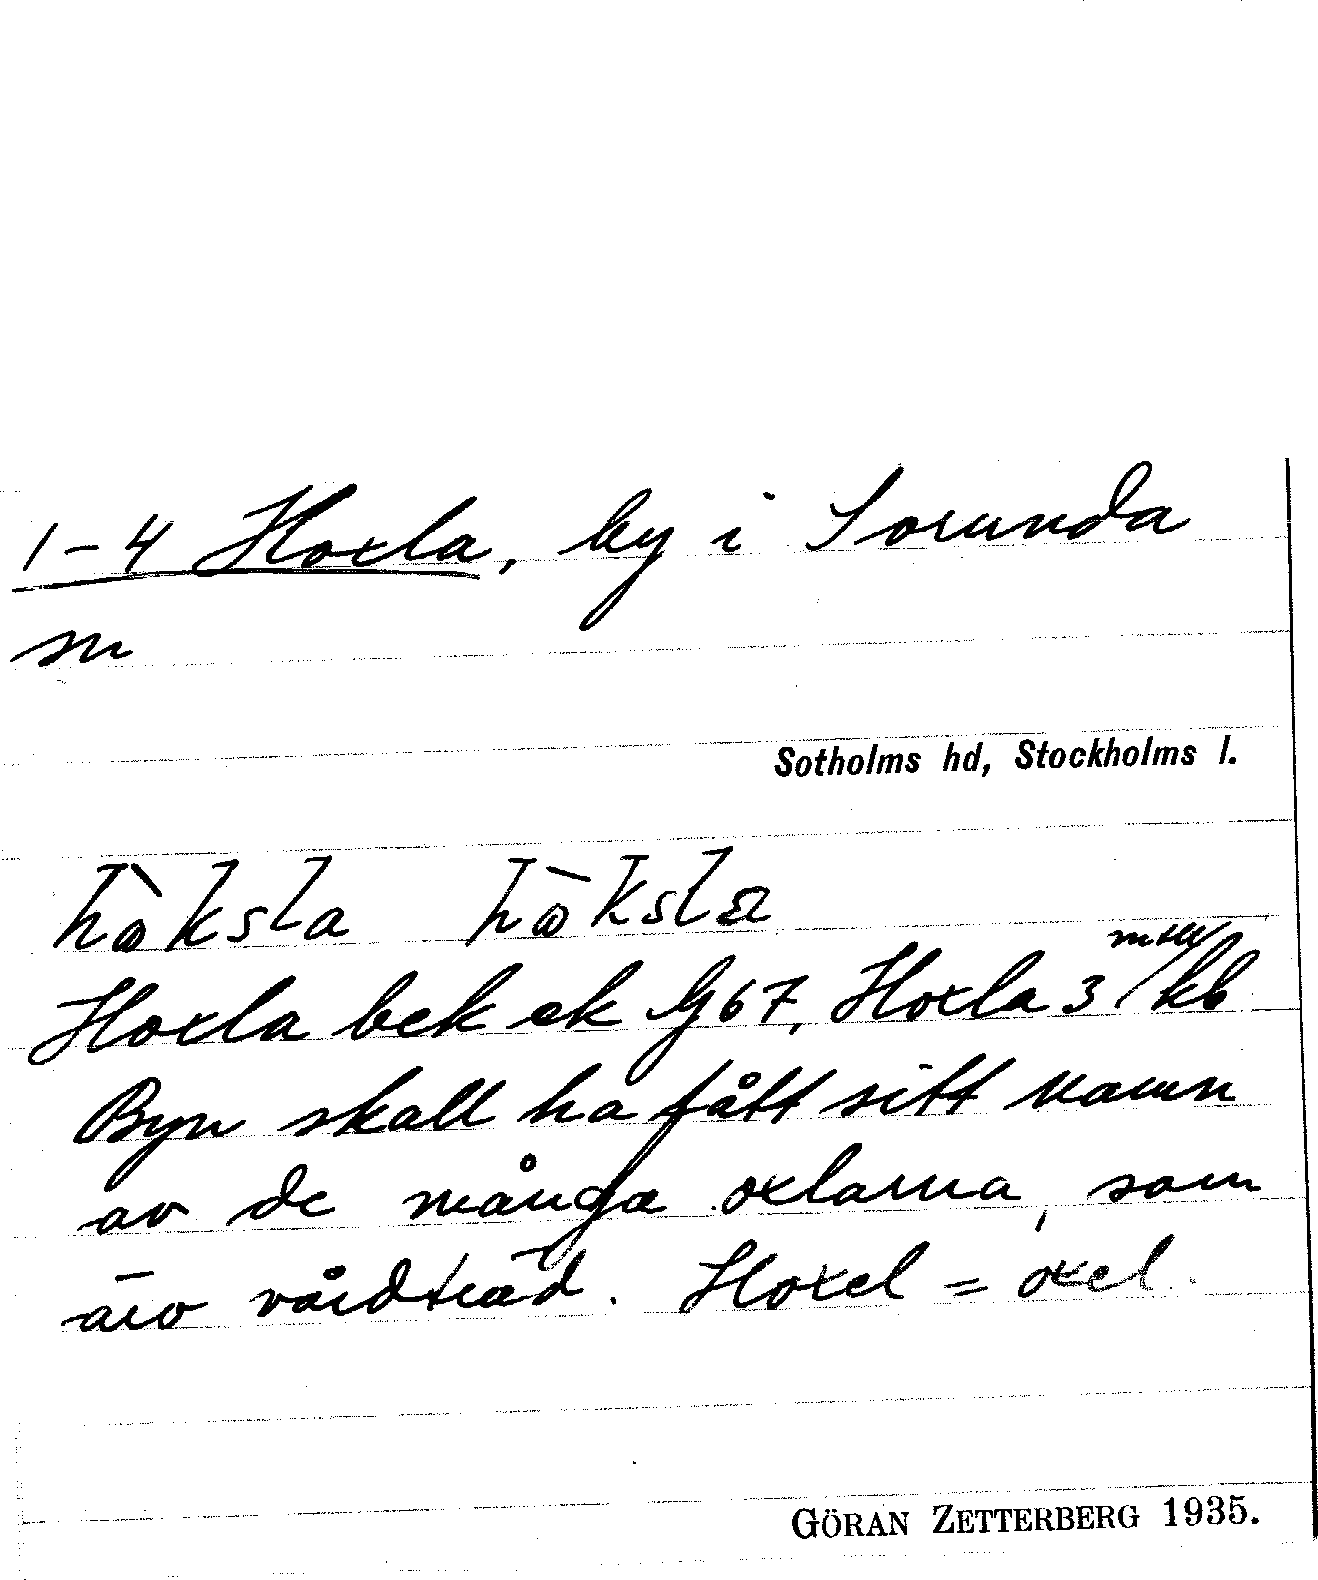 1-4 Hoxla, by i Sorunda
sn
Sotholms hd, Stockholms l.
Hoxla bek ek bl 67, Hoxla 3 mtl / kb
Byn skall ha fått sitt namn
av de många oxlarna, som
äro vårdträd. Hoxel = oxel.
GÖRAN ZETTERBERG 1935.